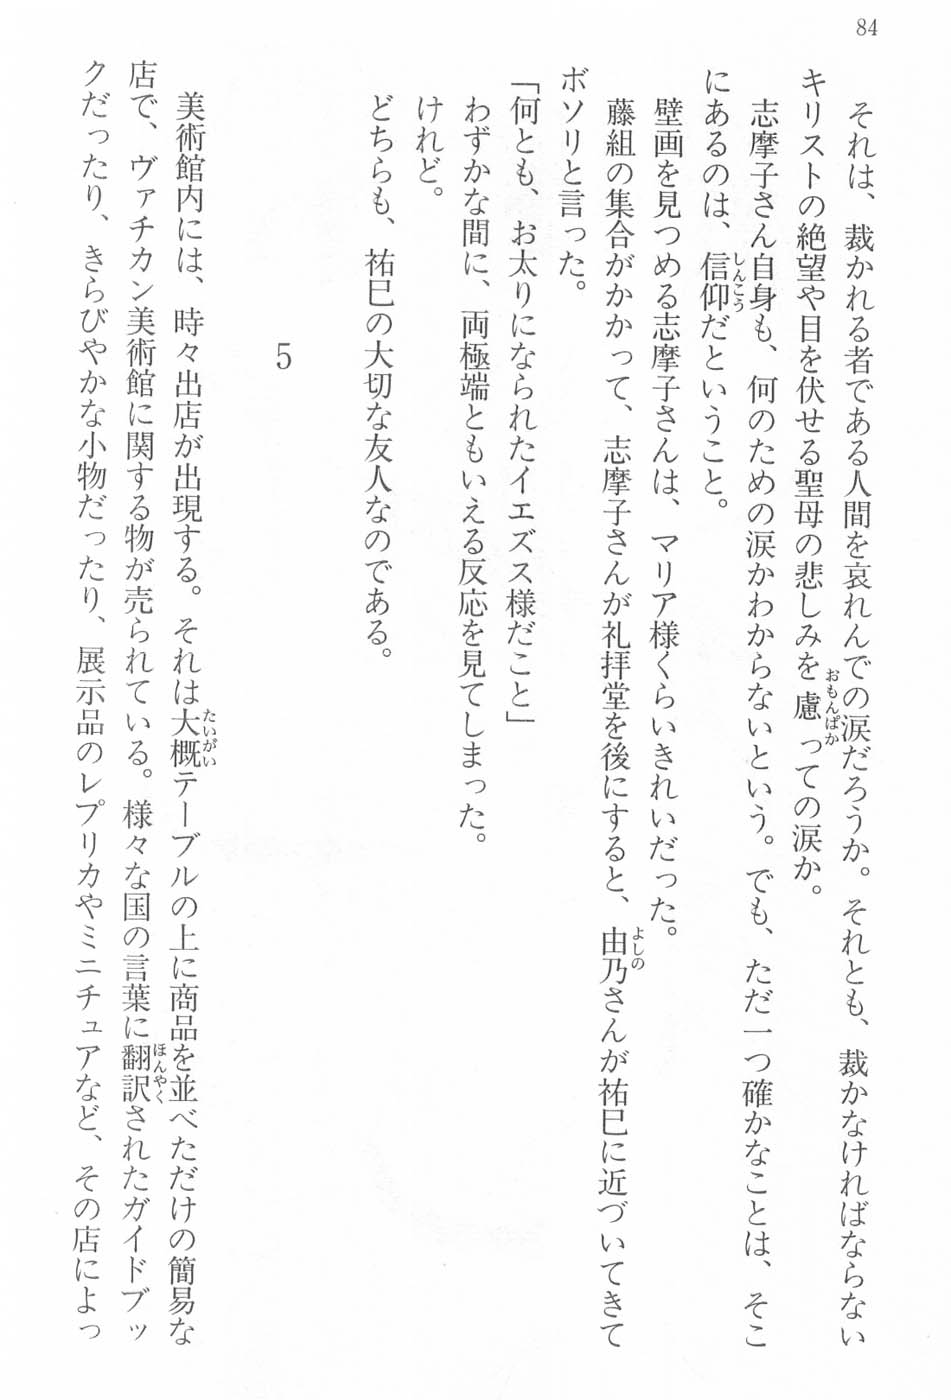 84
それは、裁かれる者である人間を哀れんでの涙だろうか。それとも、裁かなければならない
キリストの絶望や目を伏せる聖母の悲しみを慮っての涙か。
志摩子さん自身も、何のための涙かわからないという。でも、ただ一つ確かなことは、そこ
にあるのは、信仰だということ。
壁画を見つめる志摩子さんは、マリア様くらいきれいだった。
藤組の集合がかかって、志摩子さんが礼拝堂を後にすると、由乃さんが祐巳に近づいてきて
ボソリと言った。
「何とも、お太りになられたイエズス様だこと」
わずかな間に、両極端ともいえる反応を見てしまった。
けれど。
どちらも、祐巳の大切な友人なのである。
5
美術館内には、時々出店が出現する。それは大概テーブルの上に商品を並べただけの簡易な
店で、ヴァチカン美術館に関する物が売られている。様々な国の言葉に翻訳されたガイドブッ
クだったり、きらびやかな小物だったり、展示品のレプリカやミニチュアなど、その店によっ
おもんぱか
しんこう
よしの
たいがい
ほんやく